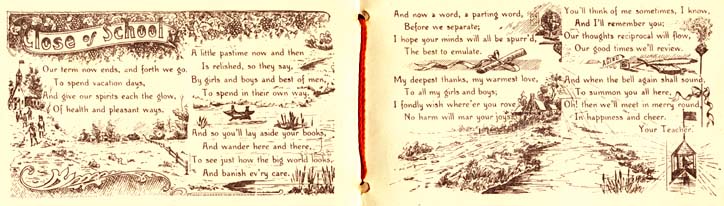 Close of School
Our term now ends, and forth we go,
To spend vacation days,
And give our spirits each the glow,
Of health and pleasant ways.
A little pastime now and then
Is relished, so they say,
By girls and boys and best of men,
To spend in their own way.
And so you'll lay aside your books,
And wander here and there,
To see just how the big world looks,
And banish ev'ry care.
And now a word, a parting word,
Before we separate;
I hope your minds will all be spurr'd,
The best to emulate.
My deepest thanks, my warmest love,
To all my girls and boys;
I fondly wish where'er you rove
No harm will mar your joys.
You'll think of me sometimes, I know,
And I'll remember you;
Our thoughts reciprocal will flow,
Our good times we'll review.
And when the bell again shall sound,
To summon you all here,
Oh! then we'll meet in merry round,
In happiness and cheer.
Your Teacher.